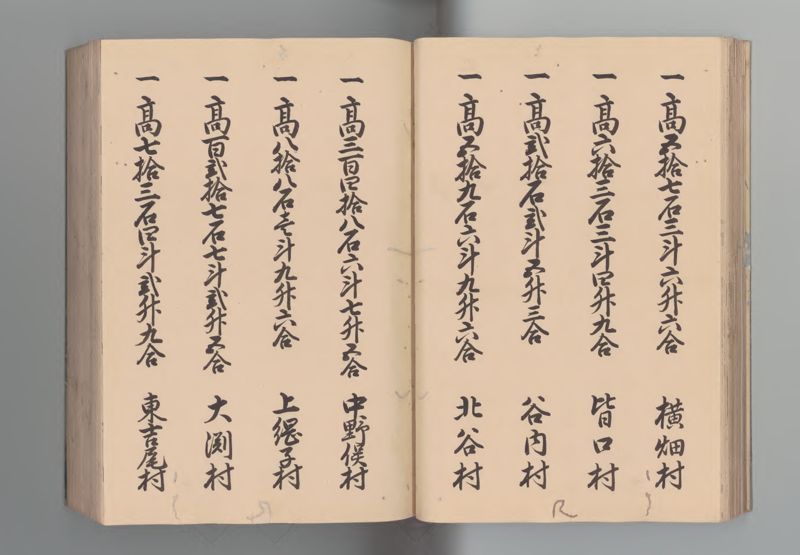 一 高五拾七石三斗六升六合 横畑村
一 高六拾三石三斗四升九合 皆口村
一 高弐拾石弐斗五升三合 谷内村
一 高五拾九石六斗九升六合 北谷村
一 高三百四拾八石六斗七升五合 中野俣村
一 高八拾八石壱斗九升六合 上綱子村
一 高百弐拾七石七斗弐升五合 大渕村
一 高七拾三石四斗弐升九合 東吉尾村